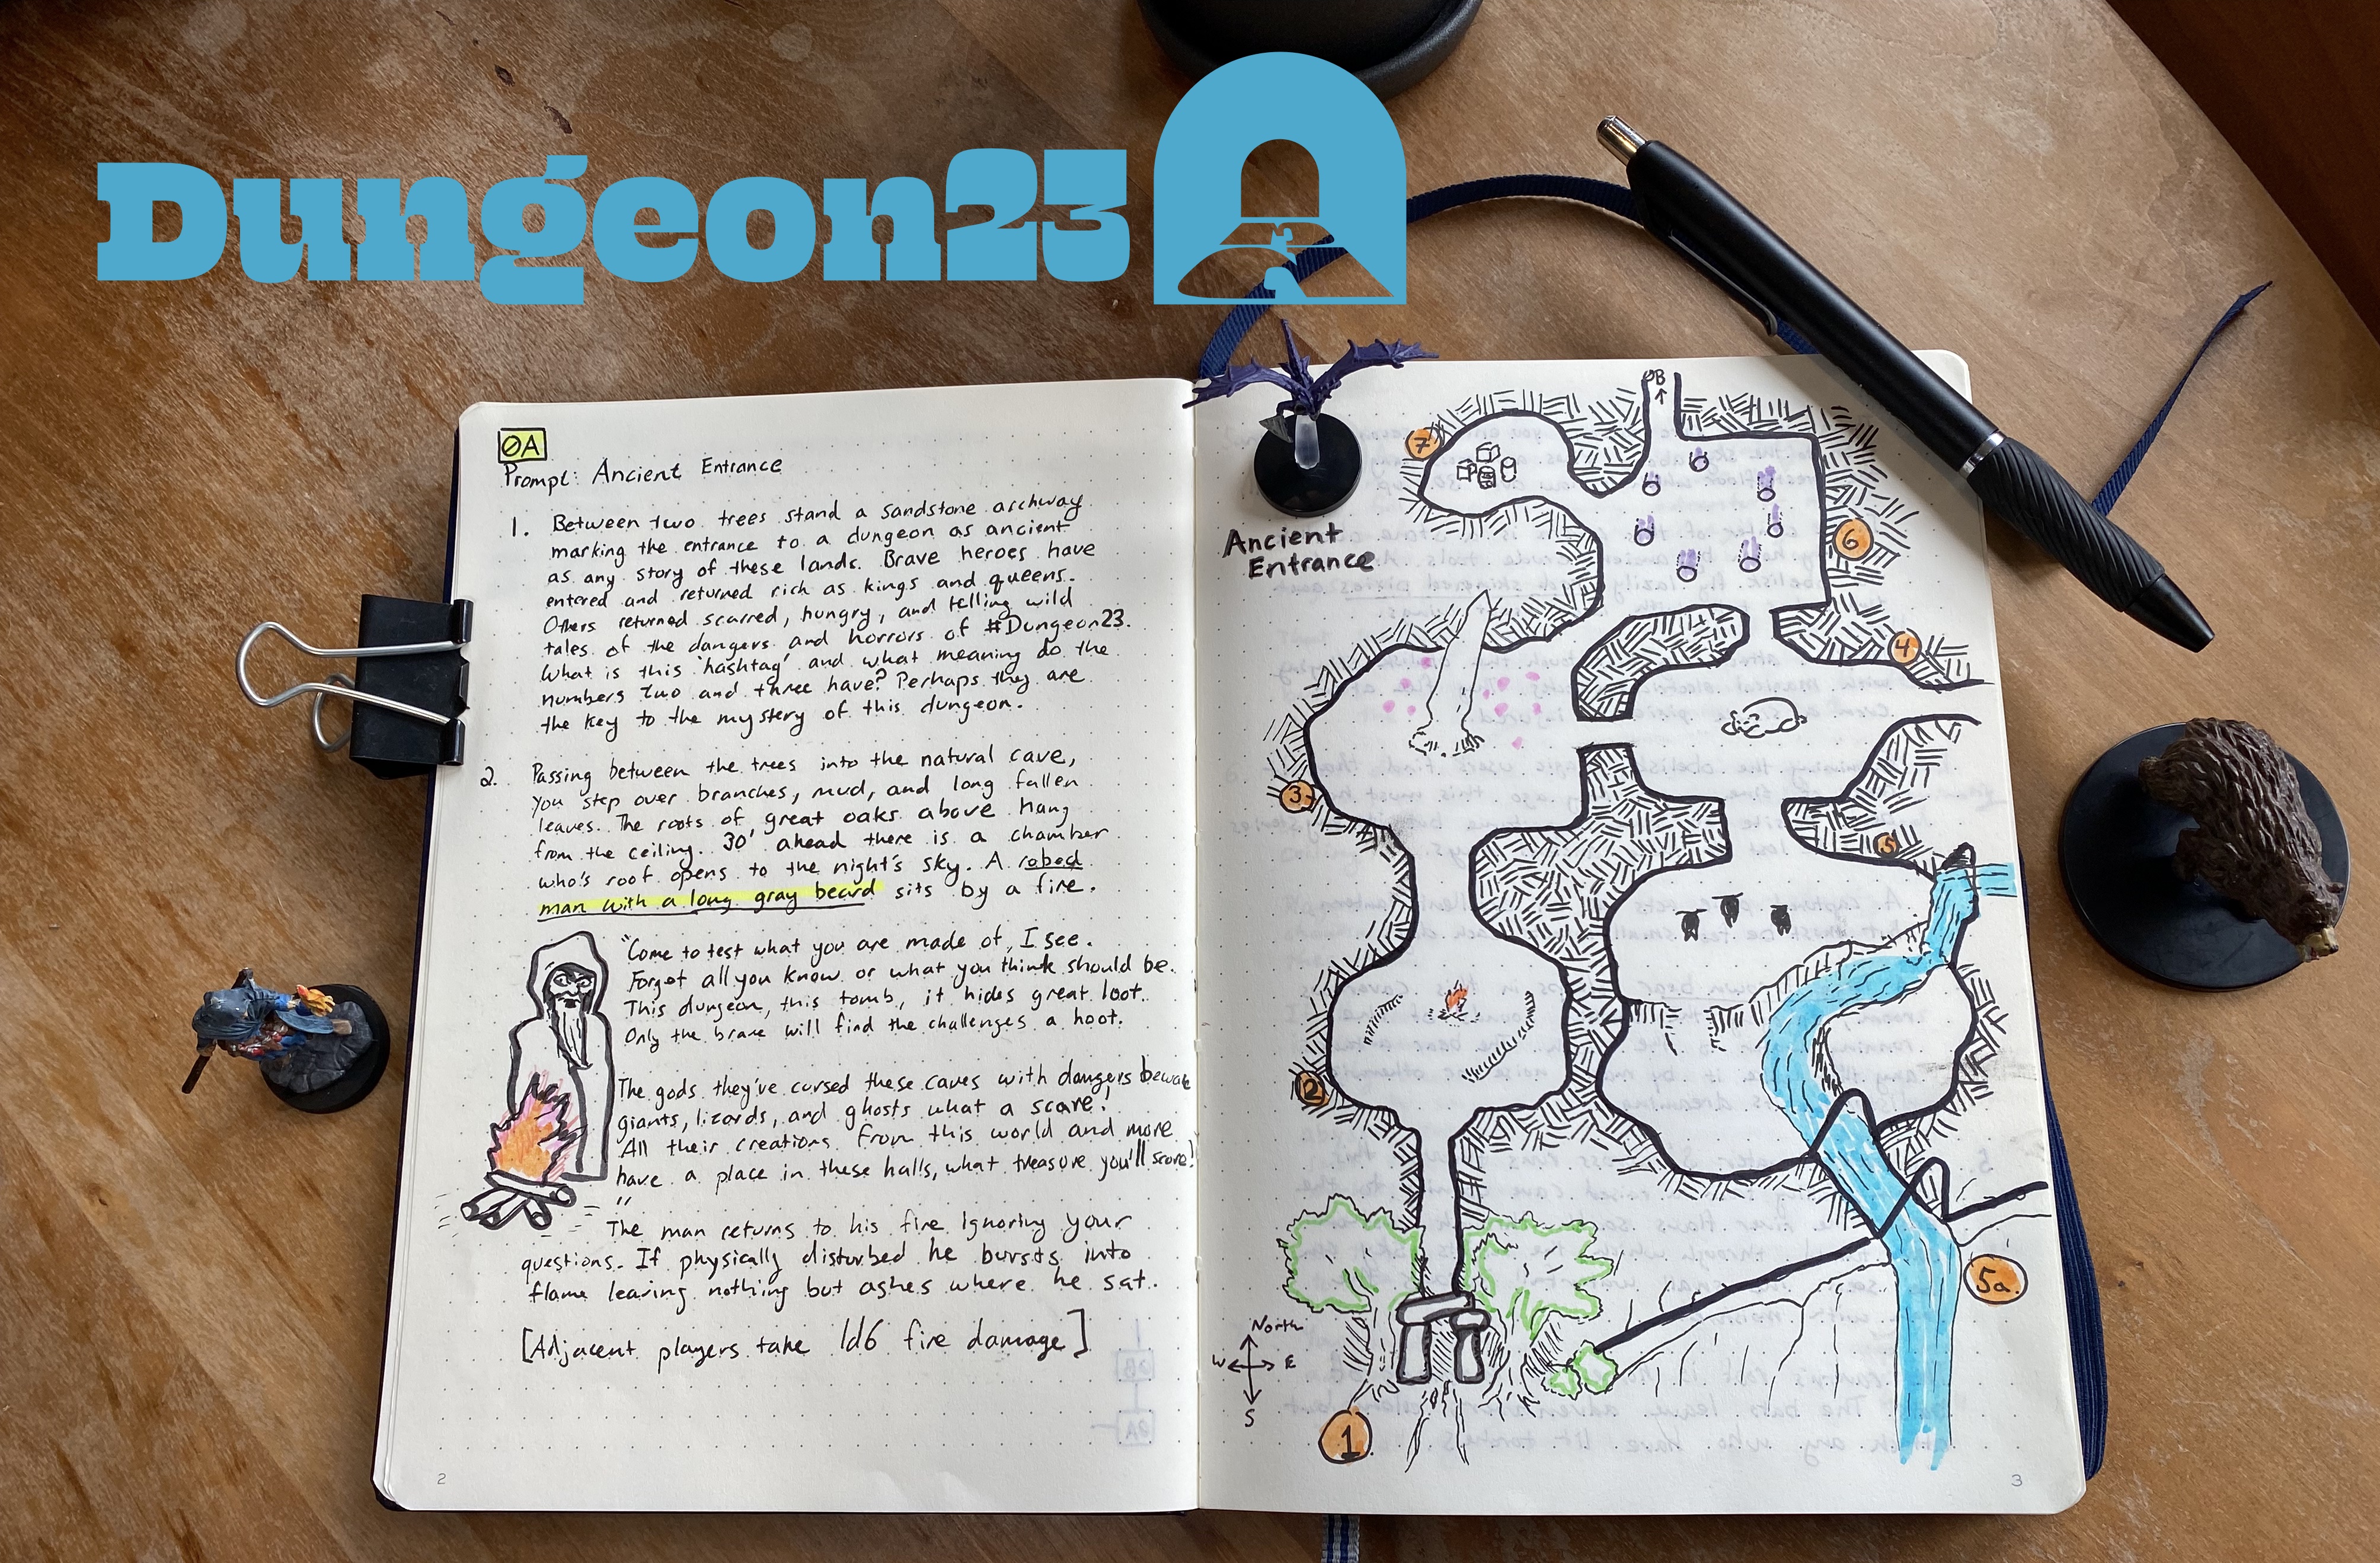 Dungeon23
ØA
Prompt: Ancient Entrance
1. Between two trees stand a sandstone archway
marking the entrance to a dungeon as ancient
as any story of these lands. Brave heroes have
entered and returned rich as kings and queens.
Others returned scarred, hungry, and telling wild
tales of the dangers and horrors of #Dungeon23.
What is this 'hashtag' and what meaning do the
numbers two and three have? Perhaps they are
the key to the mystery of this dungeon.
2. Passing between the trees into the natural cave,
you step over branches, mud, and long fallen
leaves. The roots of great oaks above hang
from the ceiling. 30' ahead there is a chamber
who's roof opens to the night's sky. A robed
man with a long gray beard sits by a fire.
"Come to test what you are made of, I see.
Forget all you know or what you think should be.
This dungeon, this tomb, it hides great loot.
Only the brave will find the challenges a hoot.
The gods they've cursed these caves with dangers beware
giants, lizards, and ghosts what a scare!
All their creations from this world and more
have a place in these halls, what treasure you'll score!
"
The man returns to his fire ignoring your
questions. If physically disturbed he bursts into
flame leaving nothing but ashes where he sat.
[Adjacent players take 1d6 fire damage]
2
ØB
7
Ancient
Entrance
6
4
3
5
2
5a.
North
W E
S
1
3